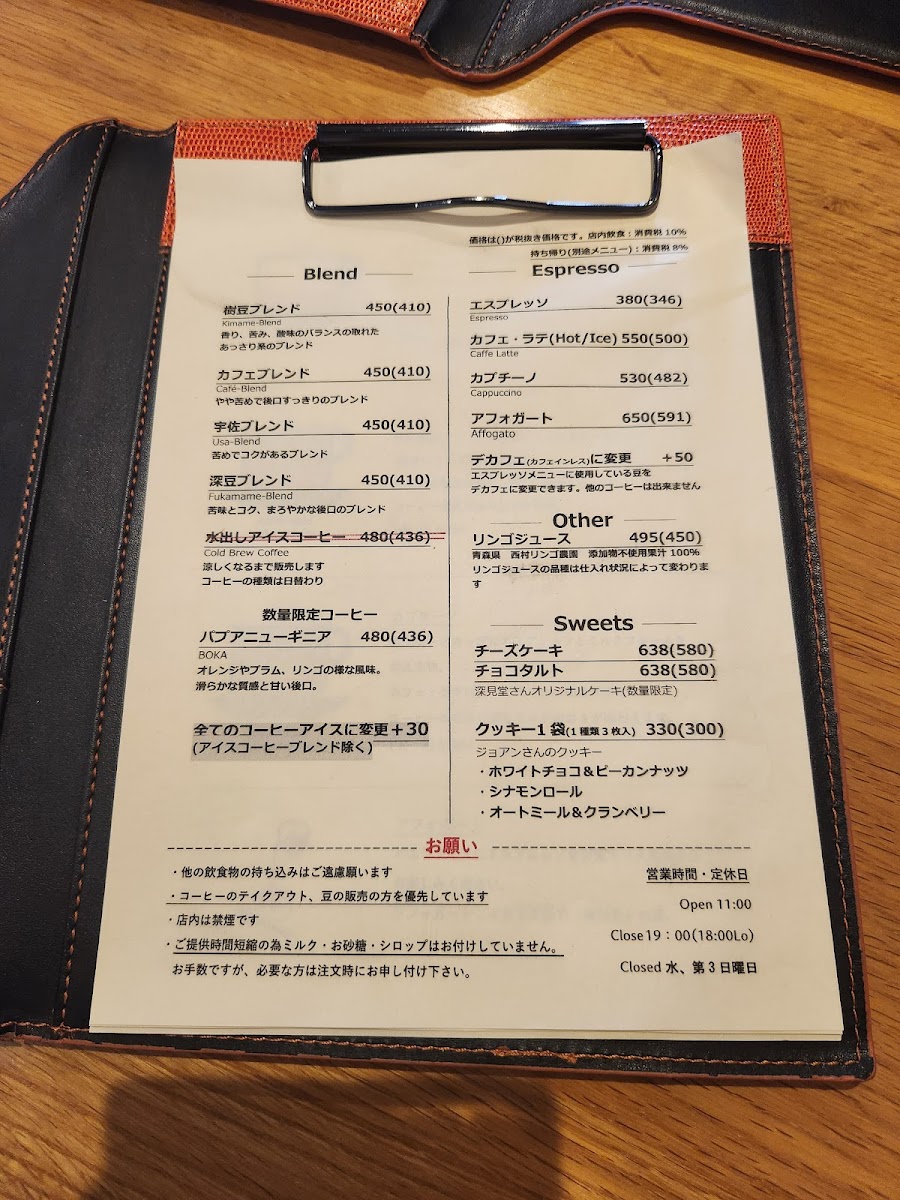 価格は()が税抜き価格です。店内飲食：消費税 10%
持ち帰り(別途メニュー)：消費税 8%
Blend
樹豆ブレンド 450(410)
Kimame-Blend
香り、苦み、酸味のバランスの取れた
あっさり系のブレンド
カフェブレンド 450(410)
Café-Blend
やや苦めで後口すっきりのブレンド
宇佐ブレンド 450(410)
Usa-Blend
苦めでコクがあるブレンド
深豆ブレンド 450(410)
Fukamame-Blend
苦味とコク、まろやかな後口のブレンド
水出しアイスコーヒー 480(436)
Cold Brew Coffee
涼しくなるまで販売します
コーヒーの種類は日替わり
数量限定コーヒー
パプアニューギニア 480(436)
BOKA
オレンジやプラム、リンゴの様な風味。
滑らかな質感と甘い後口。
全てのコーヒーアイスに変更＋30
(アイスコーヒーブレンド除く)
Espresso
エスプレッソ 380(346)
Espresso
カフェ・ラテ(Hot/Ice) 550(500)
Caffe Latte
カプチーノ 530(482)
Cappuccino
アフォガート 650(591)
Affogato
デカフェ(カフェインレス)に変更 ＋50
エスプレッソメニューに使用している豆を
デカフェに変更できます。他のコーヒーは出来ません
Other
リンゴジュース 495(450)
青森県 西村リンゴ農園 添加物不使用果汁 100%
リンゴジュースの品種は仕入れ状況によって変わりま
す
Sweets
チーズケーキ 638(580)
チョコタルト 638(580)
深見堂さんオリジナルケーキ(数量限定)
クッキー1 袋(1 種類 3 枚入) 330(300)
ジョアンさんのクッキー
・ホワイトチョコ＆ピーカンナッツ
・シナモンロール
・オートミール＆クランベリー
お願い
・他の飲食物の持ち込みはご遠慮願います
・コーヒーのテイクアウト、豆の販売の方を優先しています
・店内は禁煙です
・ご提供時間短縮の為ミルク・お砂糖・シロップはお付けしていません。
お手数ですが、必要な方は注文時にお申し付け下さい。
営業時間・定休日
Open 11:00
Close 19：00(18:00Lo)
Closed 水、第 3 日曜日